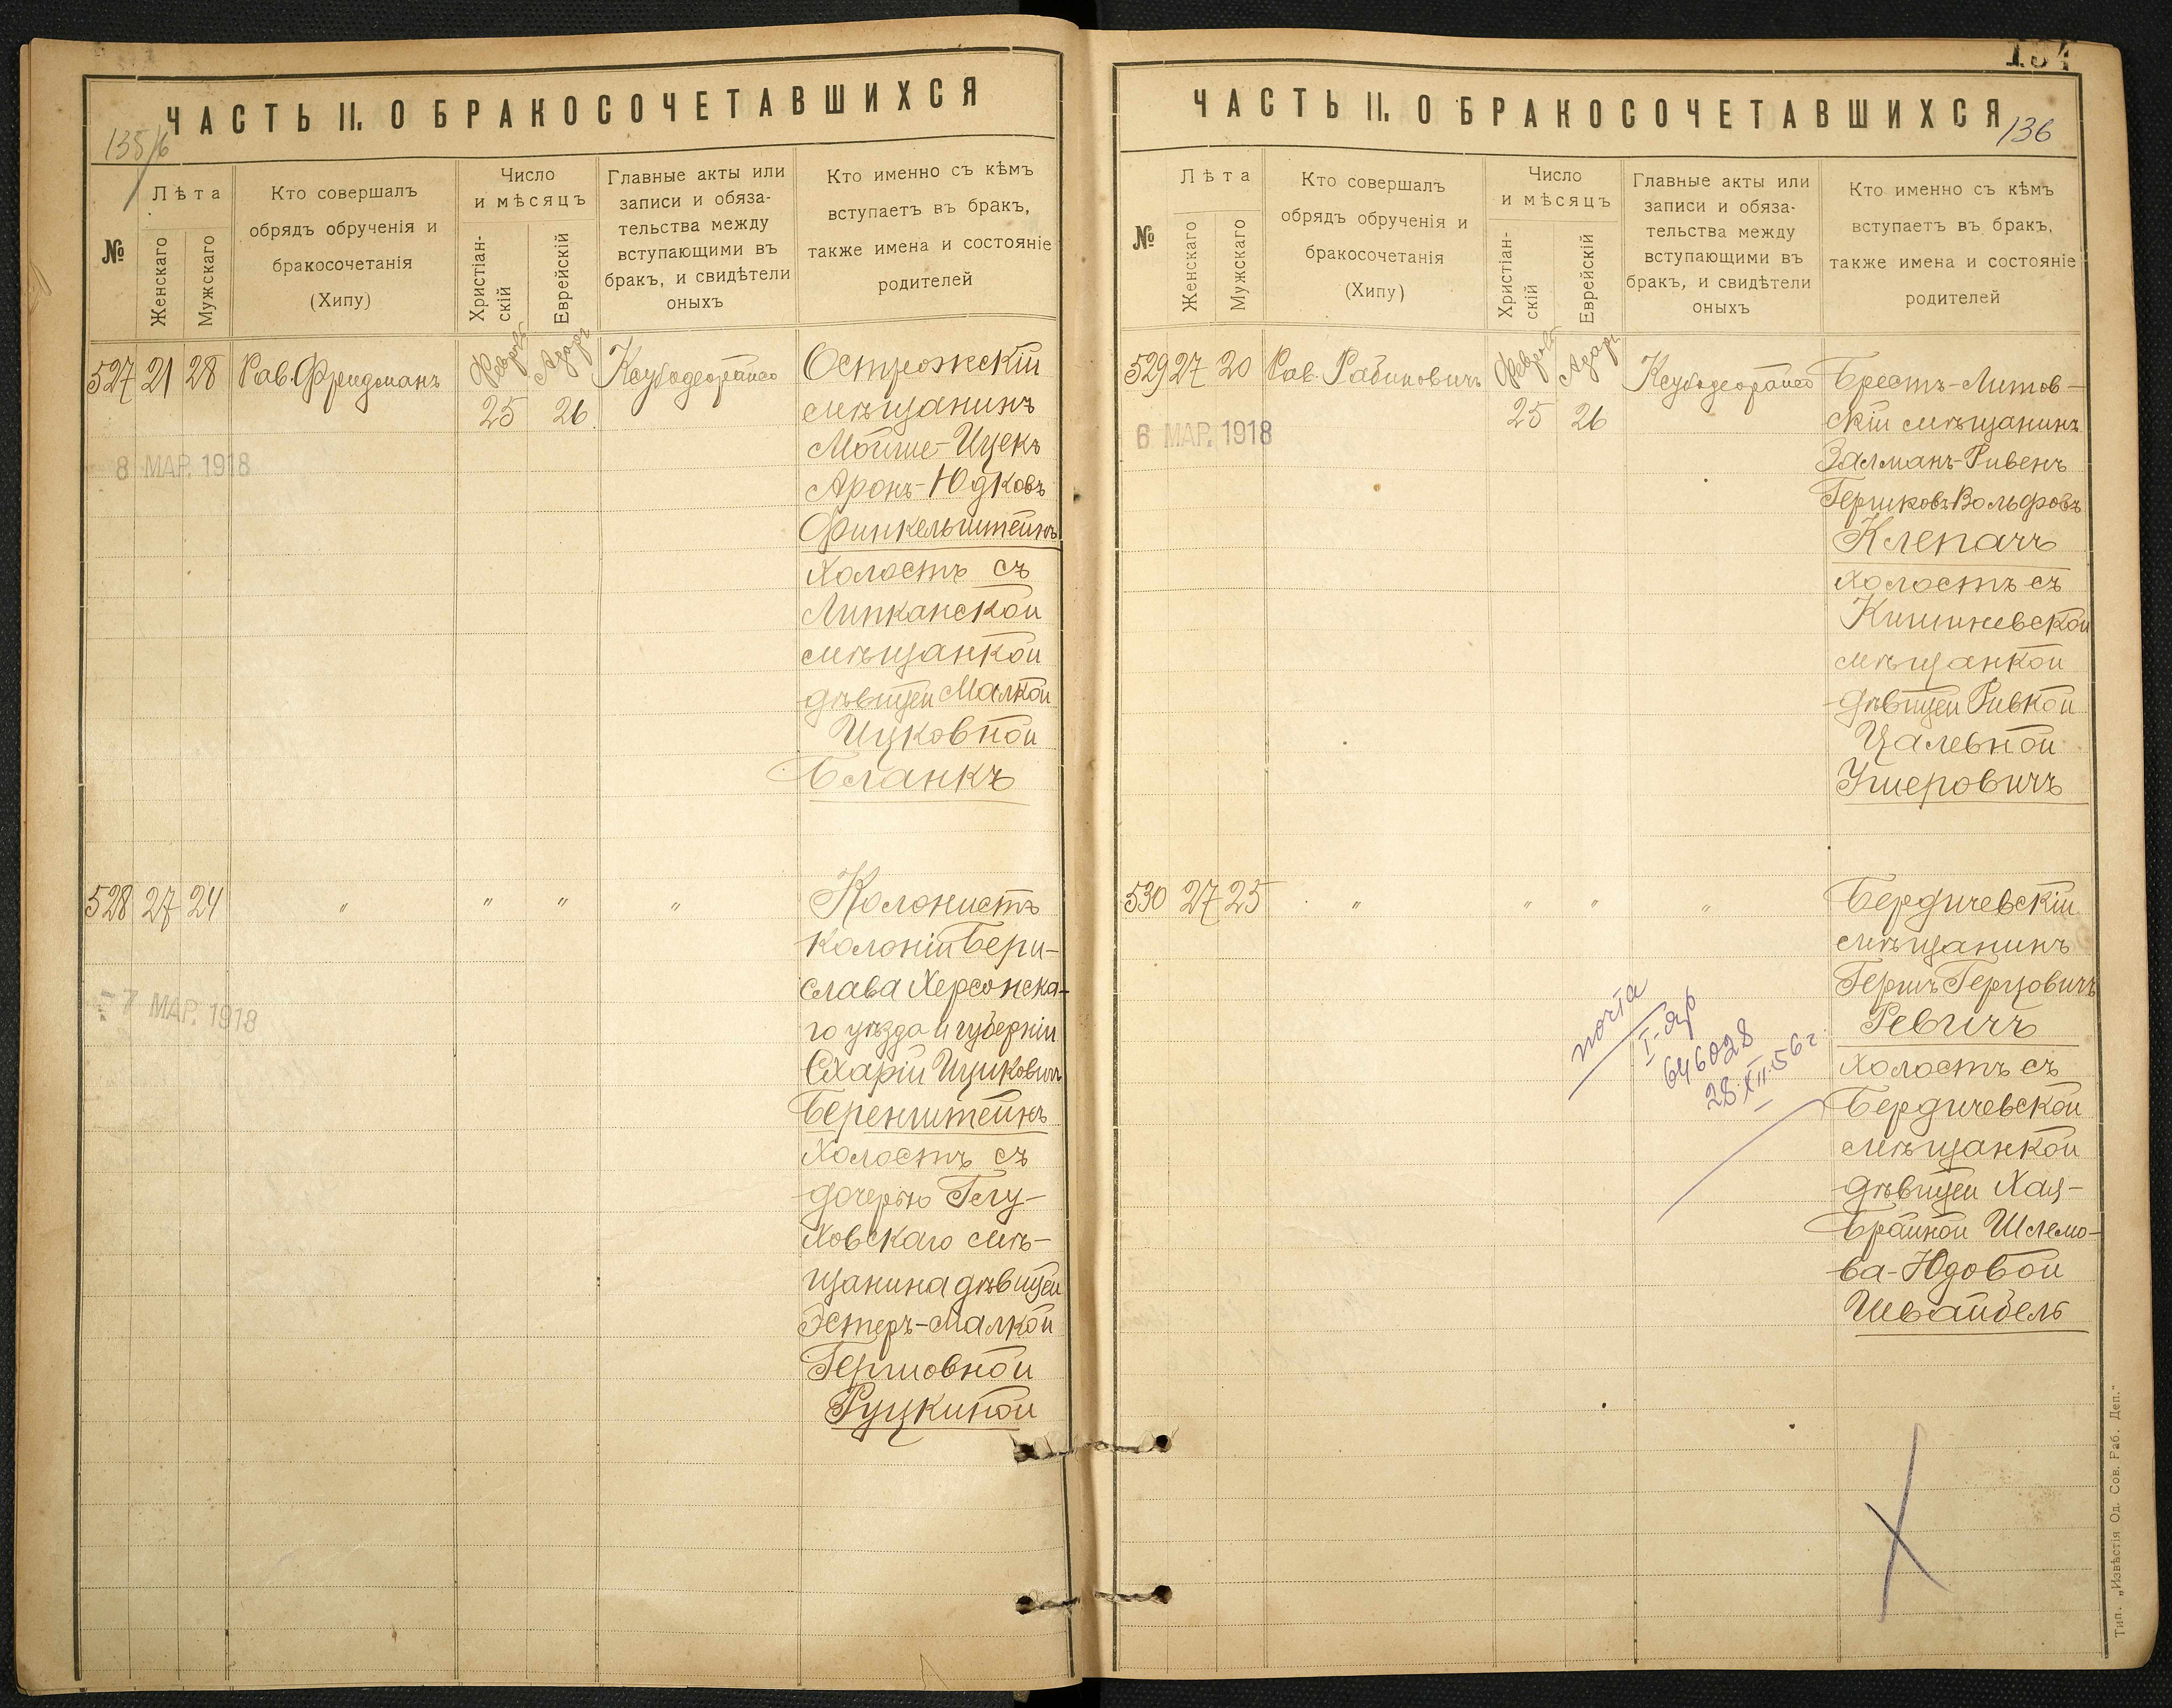 ЧАСТЬ II. О БРАКОСОЧЕТАВШИХСЯ
135/6
№
Лѣта
Женскаго
Мужскаго
Кто совершалъ
обрядъ обрученія и
бракосочетанія
(Хипу)
Число
и мѣсяцъ
Христіан-
скій
Еврейскій
Главные акты или
записи и обяза-
тельства между
вступающими въ
бракъ, и свидѣтели
оныхъ
Кто именно съ кѣмъ
вступаетъ въ бракъ,
также имена и состояніе
родителей
527 21 28 Рав. Фридманъ
Февраль
25
Адаръ
26
8 МАР. 1918
Острожскій
мѣщанинъ
Мойше-Ицекъ
Аронъ-Юдковъ
Финкельштейнъ
холостъ съ
Липканской
мѣщанкой
дѣвицей Малкой
Ицковной
Бланкъ
528 27 24 " " " "
7 МАР. 1918
Колонистъ
колоніи Бери-
слава Херсонска-
го уѣзда и губерніи
Схарій Ицковичъ
Беренштейнъ
холостъ съ
дочерью Глу-
ховскаго мѣ-
щанина дѣвицей
Эстеръ-Малкой
Гершовной
Руцкиной
134
ЧАСТЬ II. О БРАКОСОЧЕТАВШИХСЯ
136
№
Лѣта
Женскаго
Мужскаго
Кто совершалъ
обрядъ обрученія и
бракосочетанія
(Хипу)
Число
и мѣсяцъ
Христіан-
скій
Еврейскій
Главные акты или
записи и обяза-
тельства между
вступающими въ
бракъ, и свидѣтели
оныхъ
Кто именно съ кѣмъ
вступаетъ въ бракъ,
также имена и состояніе
родителей
529 27 20 Рав. Рабиновичъ
Февраль
25
Адаръ
26
6 МАР. 1918
Брестъ-Литов-
скій мѣщанинъ
Залманъ-Рувенъ
Гершковъ Вольфовъ
Клепачъ
холостъ съ
Кишиневской
мѣщанкой
дѣвицей Ривкой
Цалевной
Ушеровичъ
530 27 25 " " " "
Бердичевскій
мѣщанинъ
Гершъ Герцовичъ
Ревичъ
холостъ съ
Бердичевской
мѣщанкой
дѣвицей Хая-
Брайной Шлемо-
ва-Юдовой
Швайбель
почта
I-ЯР
646028
28.XII.56 г.
Тип. „Извѣстія Од. Сов. Раб. Деп."